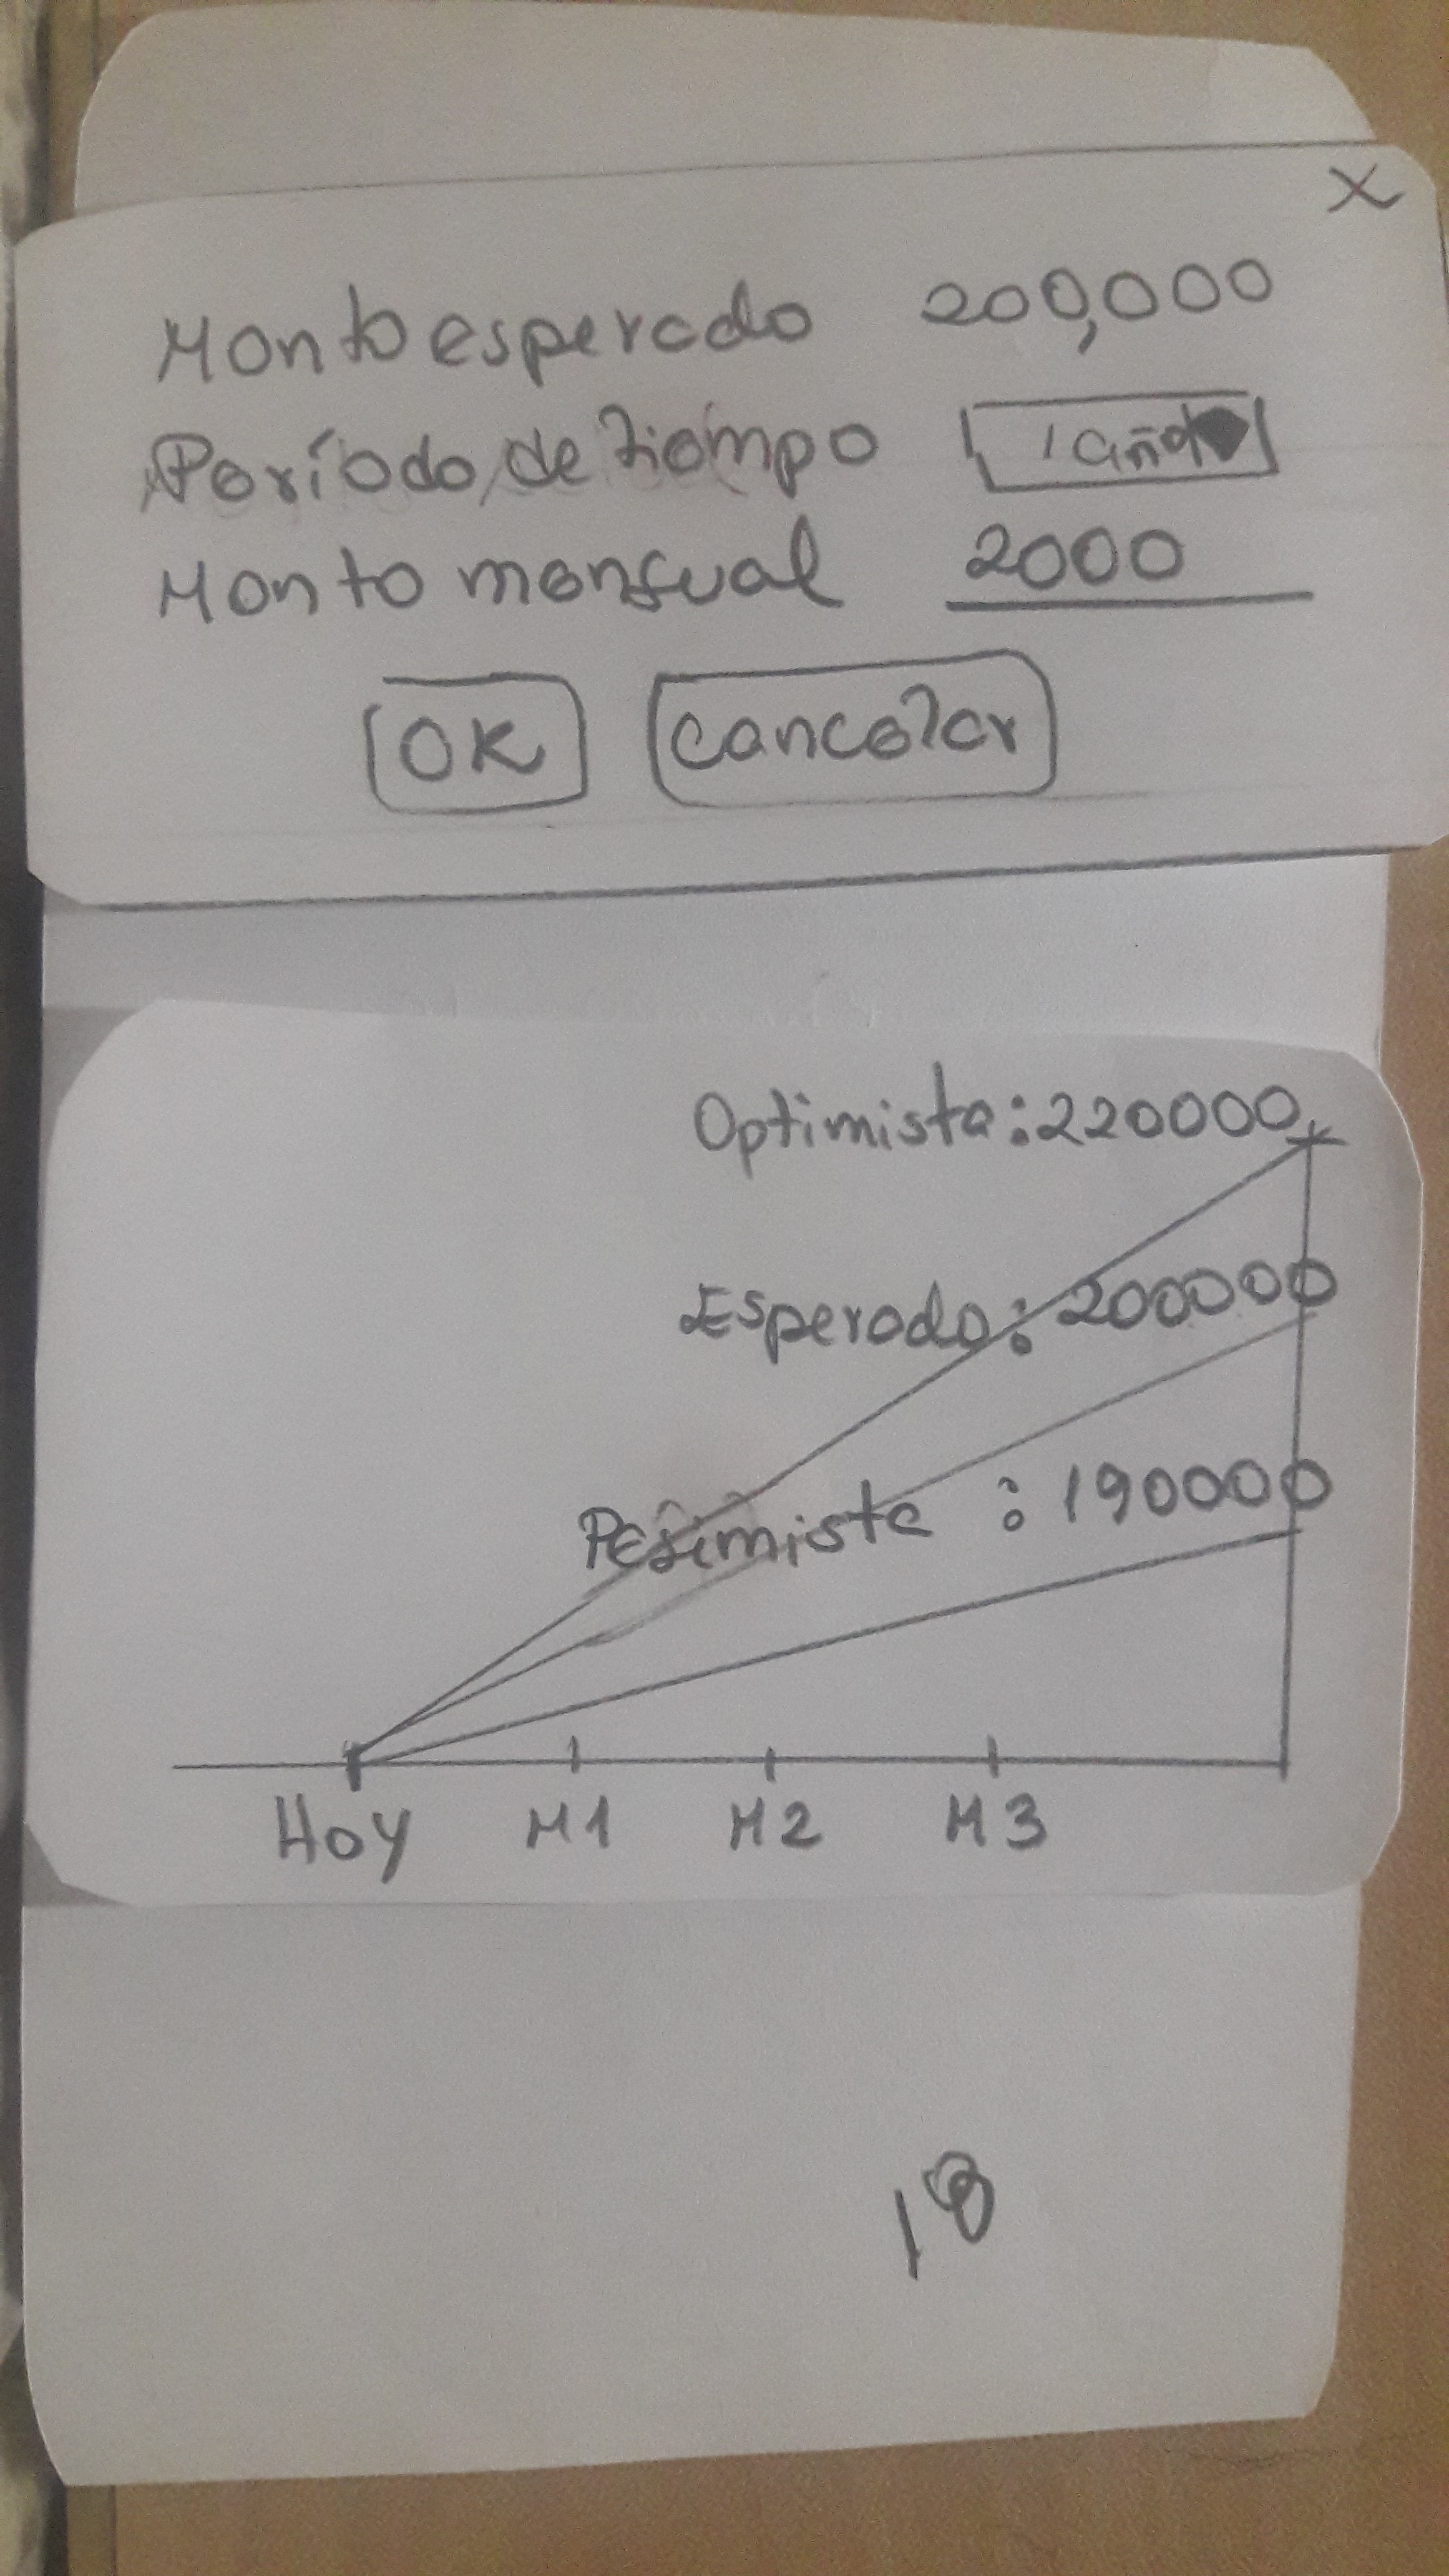 X
Monto esperado 200,000
Período de tiempo 1 año
Monto mensual 2000
OK cancelar
Optimista: 220000
Esperado: 200000
Pesimista : 190000
Hoy M1 M2 M3
18